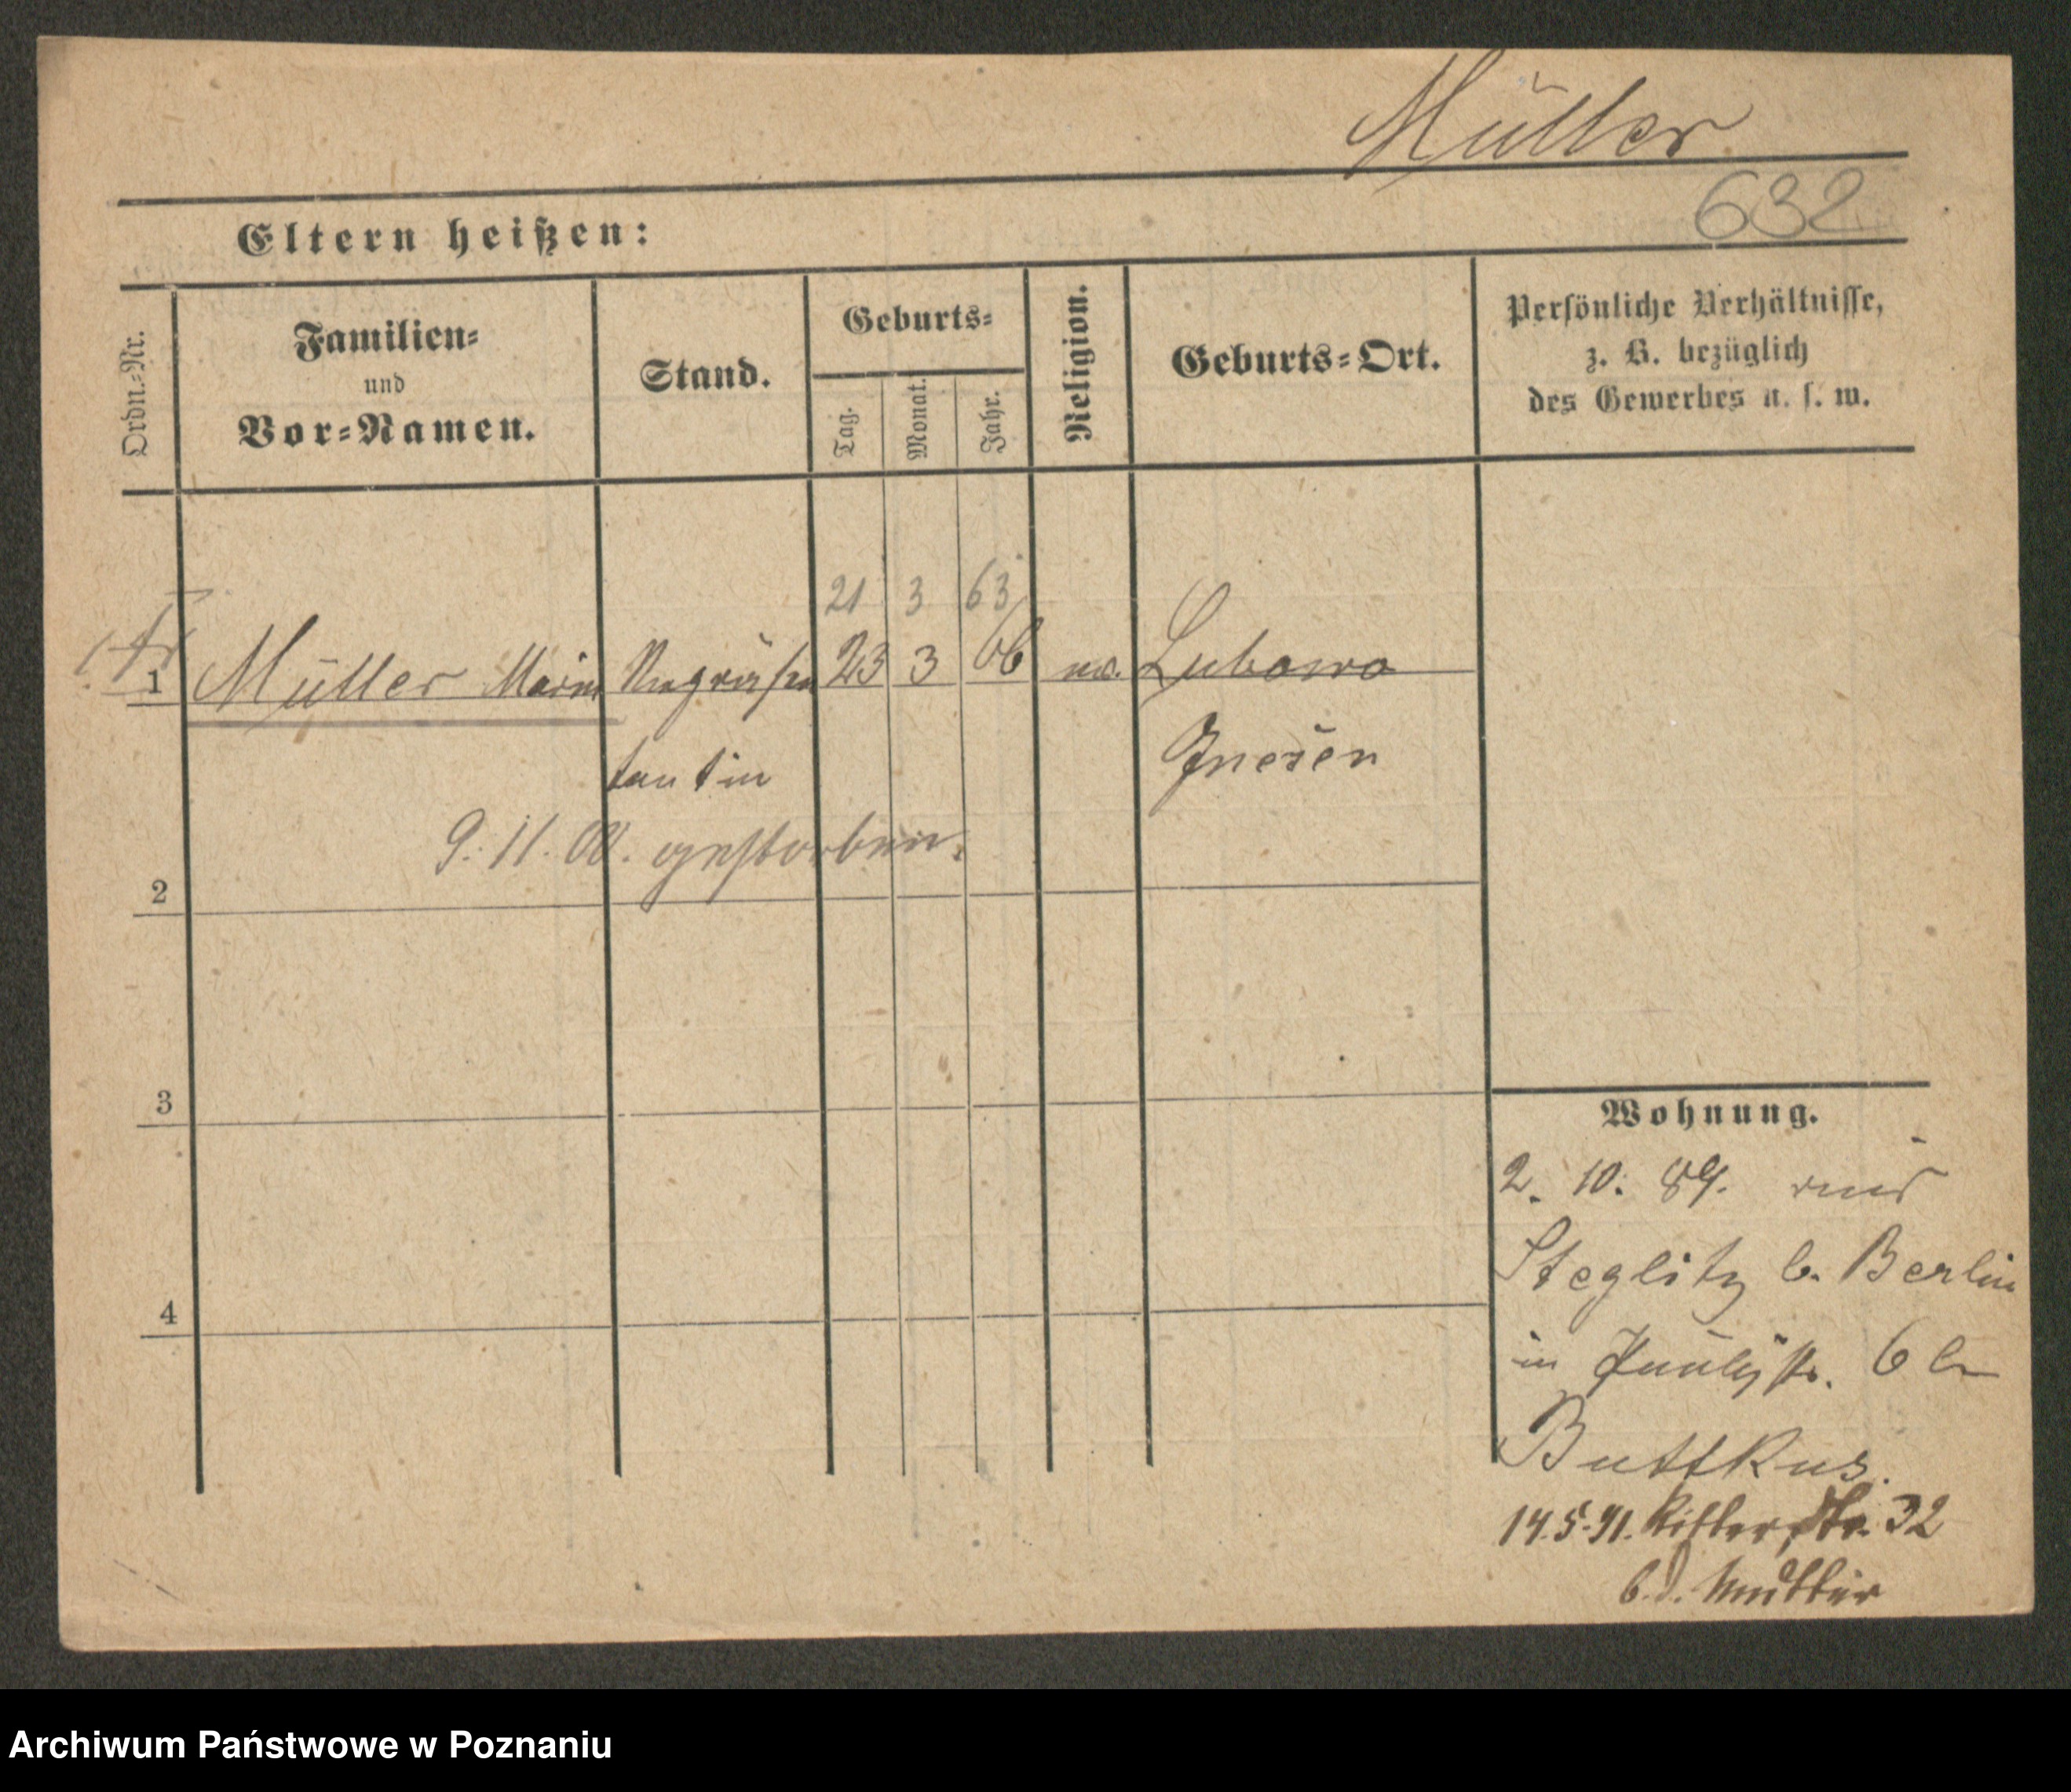 Müller
632
Eltern heißen:
Ordn.-Nr.
Familien-
und
Vor-Namen.
Stand.
Geburts-
Tag.
Monat.
Jahr.
Religion.
Geburts-Ort.
Persönliche Verhältnisse,
z. B. bezüglich
des Gewerbes u. s. w.
21 3 63
1 Müller 23 3 66 Lubowo
tantin Gnesen
9. 11. 00. gestorben.
2
3
4
Wohnung.
2. 10. 89.
Steglitz b. Berlin
in 6 b
Buttkus.
14.5.91. Ritterstr. 32
b. d. Mutter
Archiwum Państwowe w Poznaniu